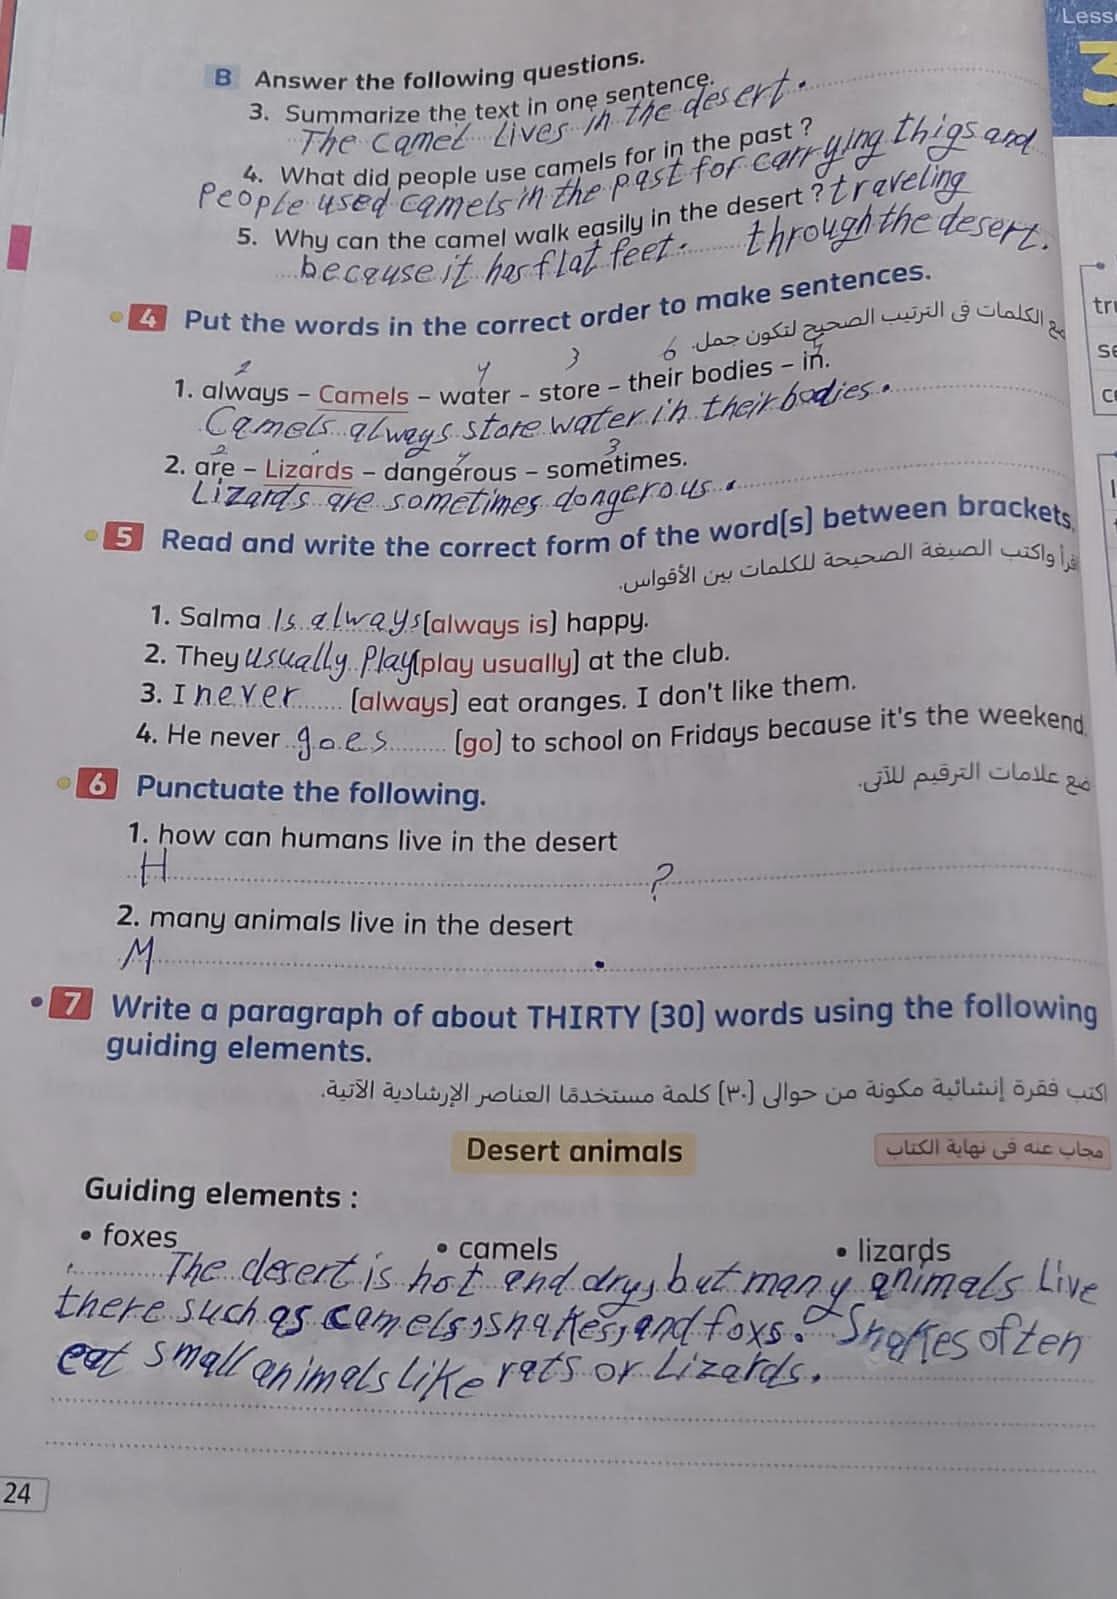 Less
3
B Answer the following questions.
3. Summarize the text in one sentence.
The camel lives in the desert.
4. What did people use camels for in the past ?
People used camels in the past for carrying thigs and
traveling
through the desert.
5. Why can the camel walk easily in the desert ?
because it has flat feet.
4 Put the words in the correct order to make sentences.
ضع الكلمات فى الترتيب الصحيح لتكون جمل.
2 4 3 6
1. always – Camels – water - store – their bodies – in.
Camels always store water in their bodies.
2 4 3
2. are – Lizards – dangerous – sometimes.
Lizards are sometimes dongerous.
5 Read and write the correct form of the word(s) between brackets.
اقرأ واكتب الصيغة الصحيحة للكلمات بين الأقواس.
1. Salma Is always (always is) happy.
2. They usually Play (play usually) at the club.
3. I never (always) eat oranges. I don't like them.
4. He never goes (go) to school on Fridays because it's the weekend.
6 Punctuate the following.
ضع علامات الترقيم للآتى.
1. how can humans live in the desert
H ?
2. many animals live in the desert
M .
7 Write a paragraph of about THIRTY (30) words using the following
guiding elements.
اكتب فقرة إنشائية مكونة من حوالى (٣٠) كلمة مستخدمًا العناصر الإرشادية الآتية.
Desert animals
مجاب عنه فى نهاية الكتاب
Guiding elements :
• foxes • camels • lizards
The desert is hot and dry, but many animals Live
there such as camels, snakes, and foxs. Snakes often
eat small animals like rats or Lizards.
24